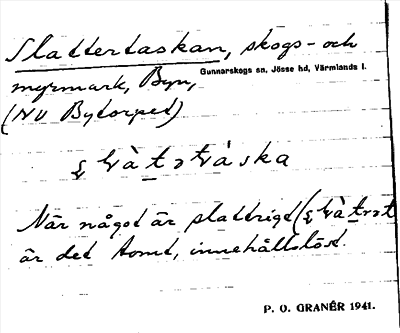 Slattertaskan, skogs- och
Gunnarskogs sn, Jösse hd, Värmlands l.
myrmark, Byn,
(NV Bytorpet)
När något är slattrigt (
är det tomt, innehållslöst.
P. O. GRANÉR 1941.